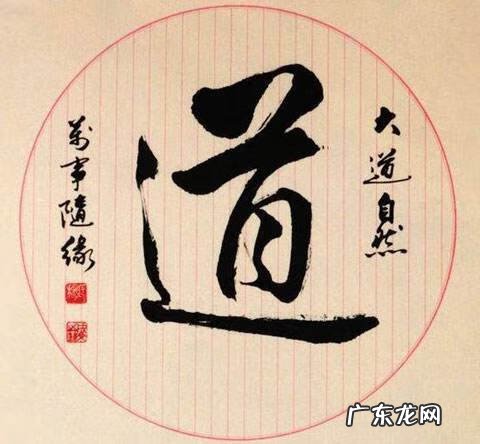 大道自然
道
萬事隨緣
广东龙网